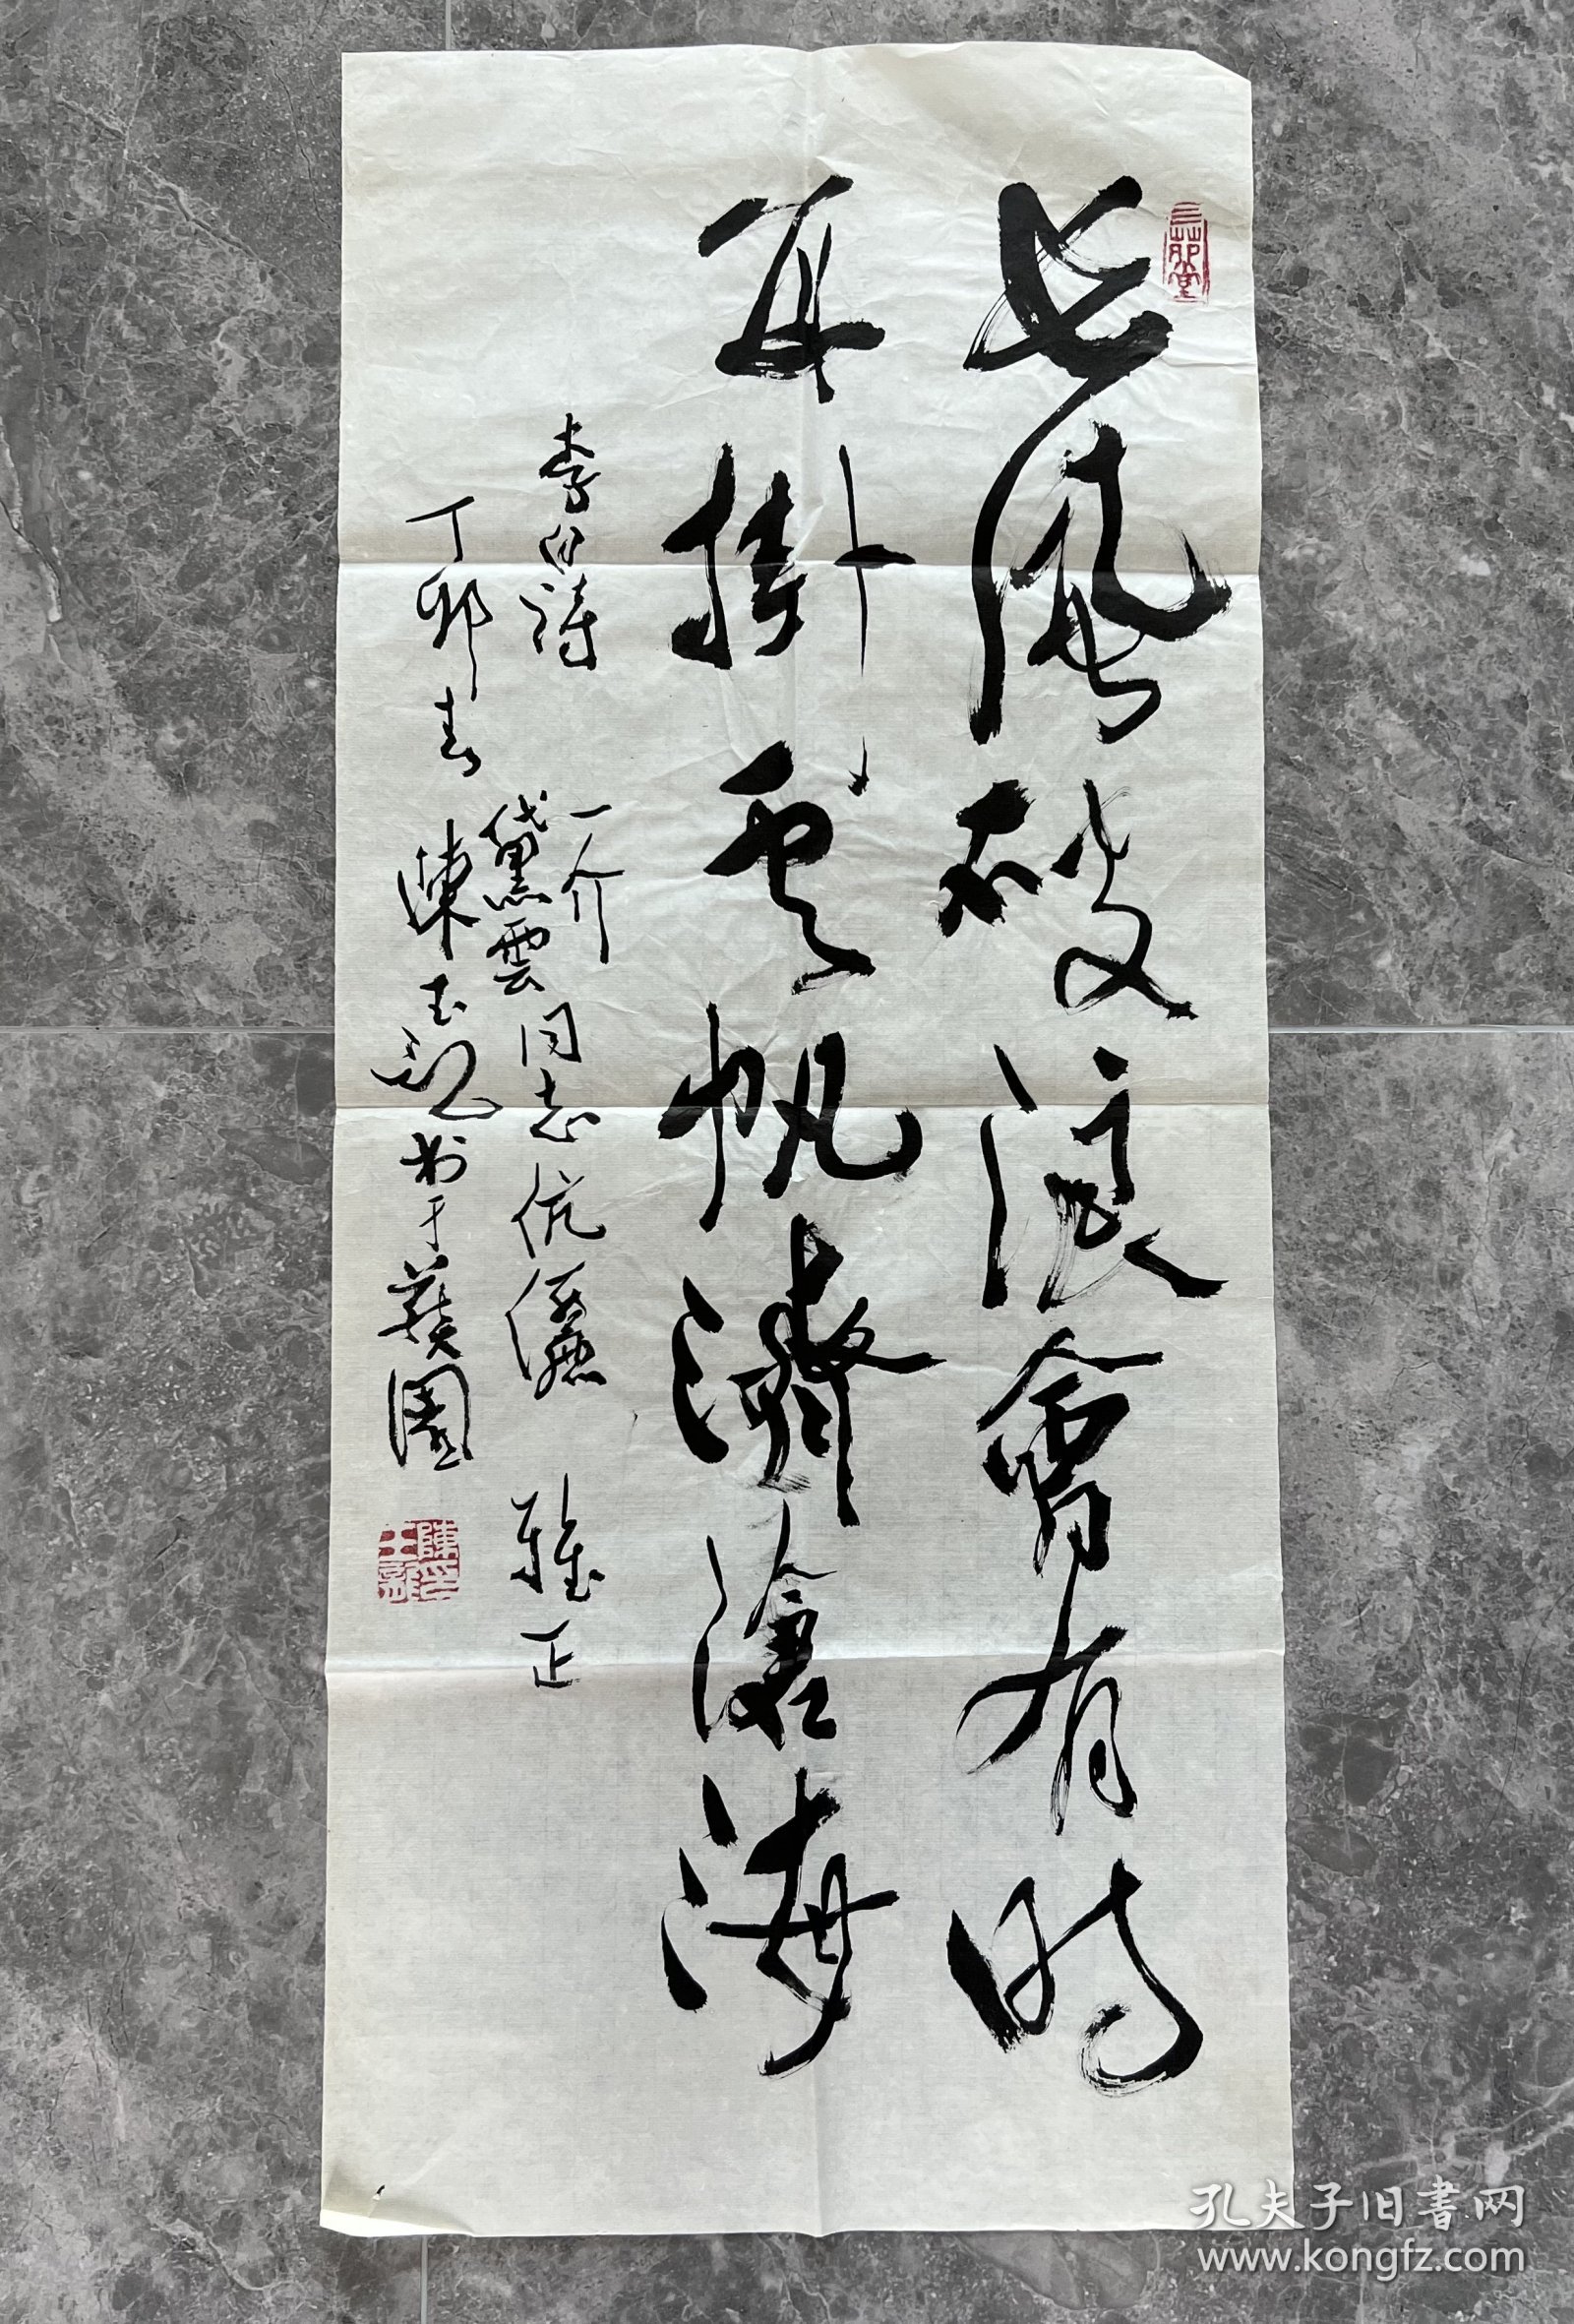 長風破浪會有時
直掛雲帆濟滄海
李白詩
一介
黛雲同志伉儷 雅正
丁卯春 陳玉龍书于燕園
陳印玉龍
孔夫子旧書网
www.kongfz.com